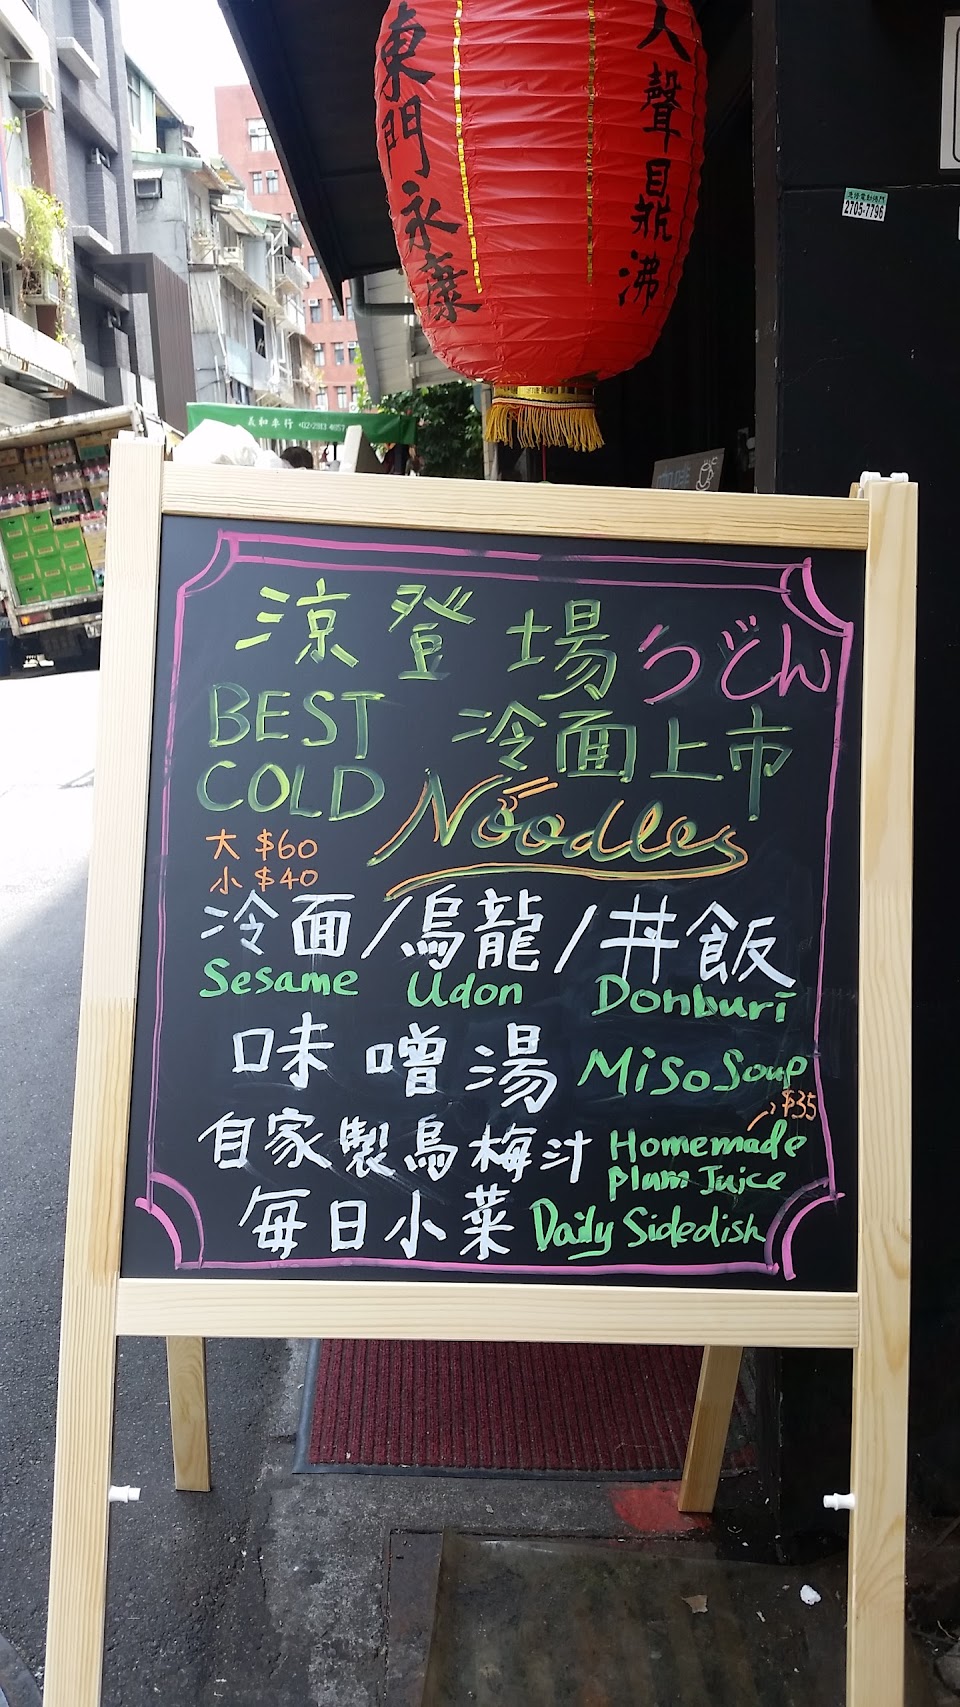 東門永康
人聲鼎沸
2705-7796
義和車行
涼登場うどん
BEST 冷面上市
COLD Noodles
大 $60
小 $40
冷面/烏龍/丼飯
Sesame Udon Donburi
味噌湯 Miso Soup
$35
自家製烏梅汁 Homemade
Plum Juice
每日小菜 Daily Sidedish